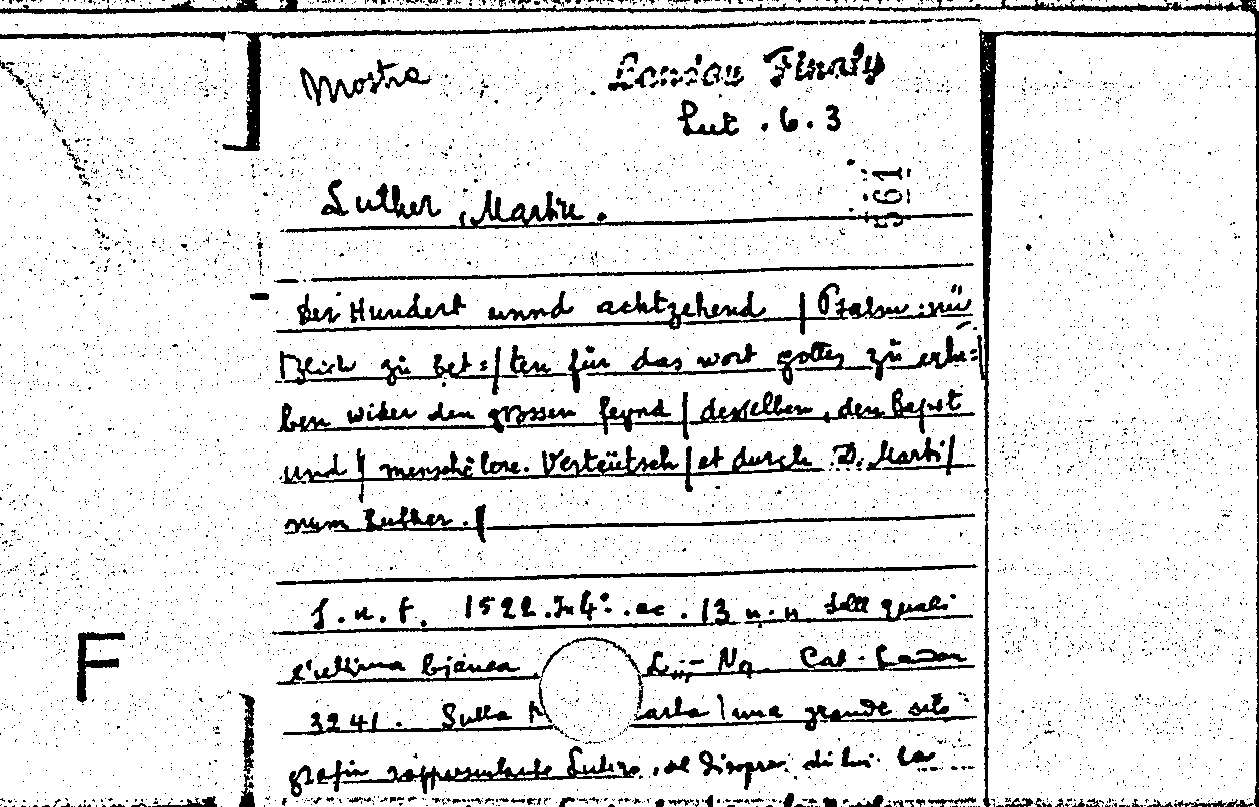 Mostra
Landau Finaly
Lut. 6. 3
561
Luther, Martin.
Der Hundert unnd achtzehend | Psalm nü
tzlich zů bet=| ten für das wort gottes zů erhe=|
ben wider den grossen feynd | desselben, den Bapst
und | menschē lere. Verteütsch | et durch D. Marti |
num Luther. |
S. n. t. 1522. In 4°. cc. 13 n. n delle quali
l'ultima bianca. Cat. Landau
3241. Sulla carta | una grande
grafia rappresentante Lutero, al disopra di lui la
F